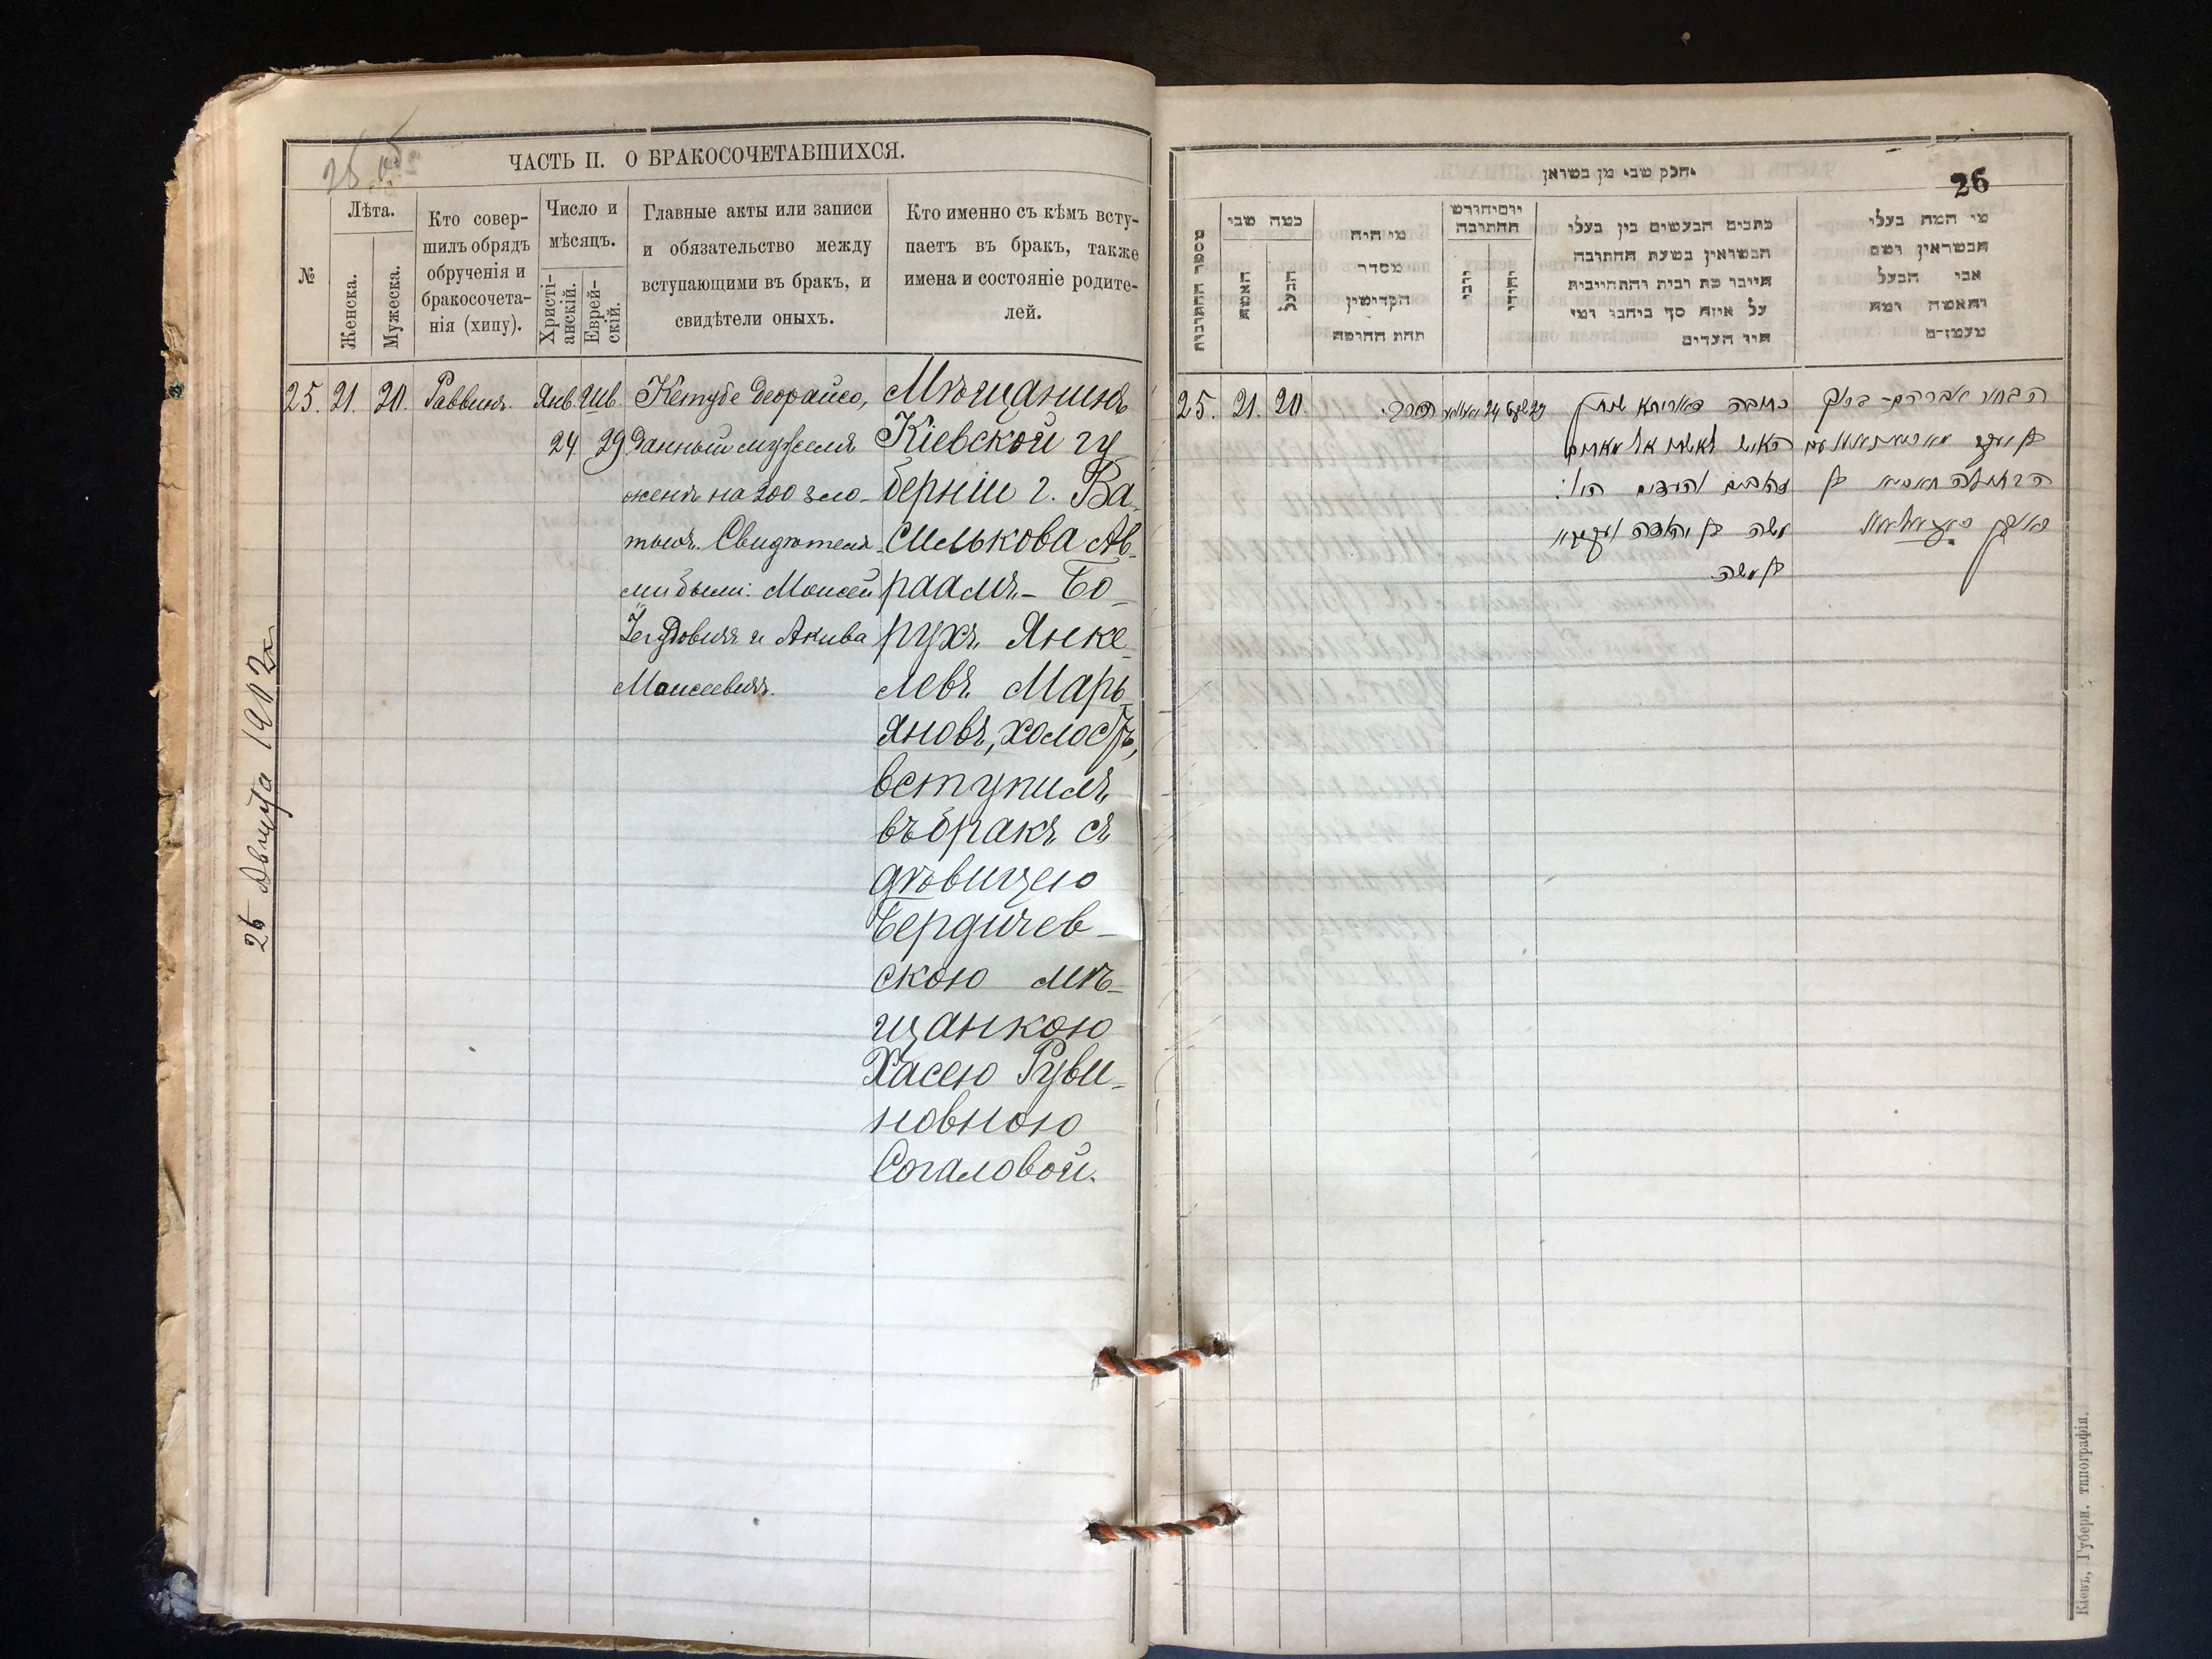 ЧАСТЬ II. О БРАКОСОЧЕТАВШИХСЯ.
№
Лѣта.
Женска.
Мужеска.
Кто совер-
шилъ обрядъ
обрученія и
бракосочета-
нія (хипу).
Число и
мѣсяцъ.
Христі-
анскій.
Еврей-
скій.
Главные акты или записи
и обязательство между
вступающими въ бракъ, и
свидѣтели оныхъ.
Кто именно съ кѣмъ всту-
паетъ въ бракъ, также
имена и состояніе родите-
лей.
25. 21. 20. Раввинъ. Янв. Шв.
24 29
Кетубе деорайсо,
данный мужемъ
женѣ на 200 зло-
тыхъ. Свидѣтеля-
ми были: Моисей
Іегудовичъ и Акива
Моисеевичъ.
Мѣщанинъ
Кіевской гу
берніи г. Ва-
силькова Ав-
раамъ-Бо-
рухъ Янке-
левъ Марь-
яновъ, холостъ,
вступилъ
въ бракъ съ
дѣвицею
Бердичев-
скою мѣ-
щанкою
Хасею Руви-
новною
Согаловой.
26 Августа 1902 г
26
מספר החתונות
כמה שני
האשה
הבעל
מי היה
מסדר
הקדושין
תחת החופה
יום וחודש
החתונה
נוצרי
יהודי
כתבים הנעשים בין בעלי
הנשואין בשעת החתונה
היינו כתובות והתחייבות
על איזה סך ביניהם ומי
היו העדים
מי המה בעלי
הנשואין ושם
אבי הבעל
והאשה ומה
מעמדם
25. 21. 20. 24 29
כתובה דאורייתא
משה בן יהודה ועקיבא
בן משה
הבחור אברהם-ברוך
בן יעקב
Кіевъ, Губерн. типографія.